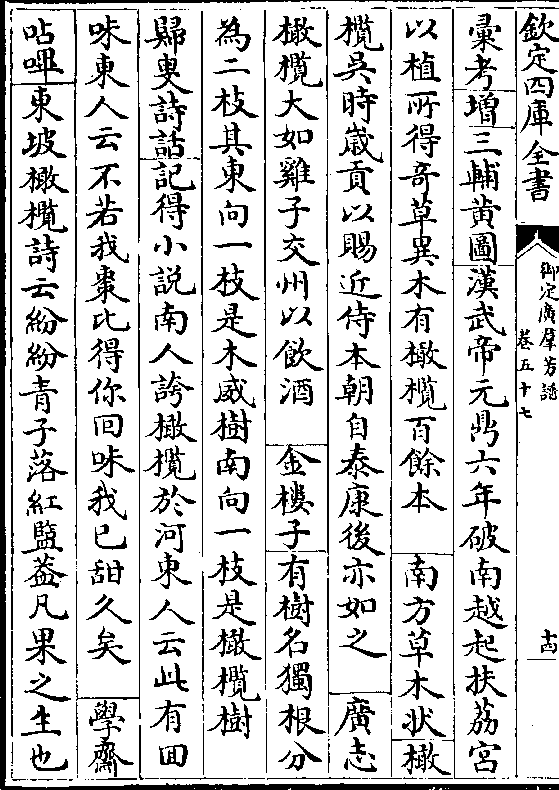 欽定四庫全書
御定廣羣芳譜
卷五十七
十四
彚考增三輔黄圖漢武帝元鼎六年破南越起扶荔宮
以植所得奇草異木有橄欖百餘本 南方草木状橄
欖吳時歳貢以賜近侍本朝自泰康後亦如之 廣志
橄欖大如雞子交州以飲酒 金樓子有樹名獨根分
為二枝其東向一枝是木威樹南向一枝是橄欖樹
歸叟詩話記得小説南人誇橄欖於河東人云此有回
味東人云不若我棗比得你回味我已甜久矣 學齋
呫嗶東坡橄欖詩云紛紛青子落紅鹽葢凡果之生也